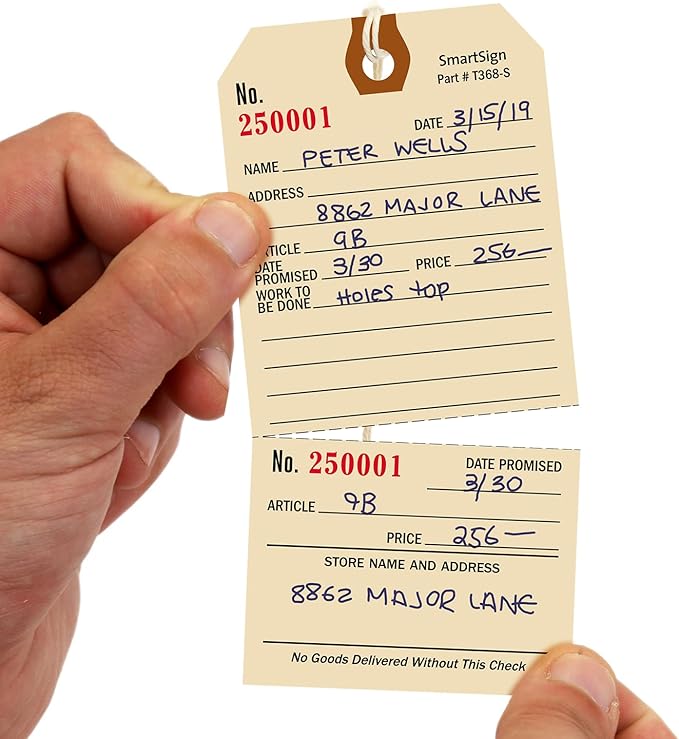 SmartSign
Part # T368-S
No.
250001
DATE 3/15/19
NAME PETER WELLS
ADDRESS
8862 MAJOR LANE
ARTICLE 9B
DATE
PROMISED 3/30 PRICE 256—
WORK TO
BE DONE Holes top
No. 250001 DATE PROMISED
3/30
ARTICLE 9B
PRICE 256—
STORE NAME AND ADDRESS
8862 MAJOR LANE
No Goods Delivered Without This Check